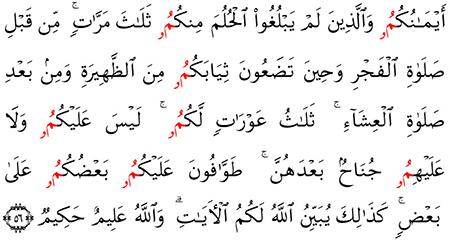 أَيْمَٰنُكُمُۥ وَٱلَّذِينَ لَمْ يَبْلُغُوا۟ ٱلْحُلُمَ مِنكُمُۥ ثَلَٰثَ مَرَّٰتٖۚ مِّن قَبْلِ
صَلَوٰةِ ٱلْفَجْرِ وَحِينَ تَضَعُونَ ثِيَابَكُمُۥ مِنَ ٱلظَّهِيرَةِ وَمِنۢ بَعْدِ
صَلَوٰةِ ٱلْعِشَآءِۚ ثَلَٰثُ عَوْرَٰتٖ لَّكُمُۥۚ لَيْسَ عَلَيْكُمُۥ وَلَا
عَلَيْهِمُۥ جُنَاحُۢ بَعْدَهُنَّۚ طَوَّٰفُونَ عَلَيْكُمُۥ بَعْضُكُمُۥ عَلَىٰ
بَعْضٖۚ كَذَٰلِكَ يُبَيِّنُ ٱللَّهُ لَكُمُ ٱلْأٓيَٰتِۗ وَٱللَّهُ عَلِيمٌ حَكِيمٞ ٥٦